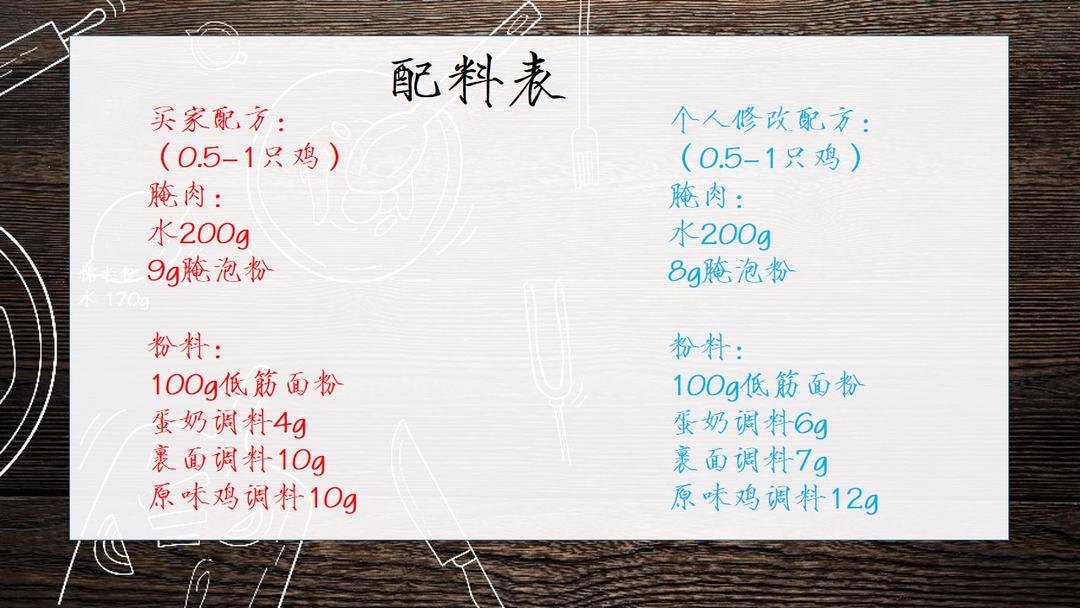 配料表
买家配方：
（0.5-1只鸡）
腌肉：
水200g
9g腌泡粉
粉料：
100g低筋面粉
蛋奶调料4g
裹面调料10g
原味鸡调料10g
个人修改配方：
（0.5-1只鸡）
腌肉：
水200g
8g腌泡粉
粉料：
100g低筋面粉
蛋奶调料6g
裹面调料7g
原味鸡调料12g
水 170g